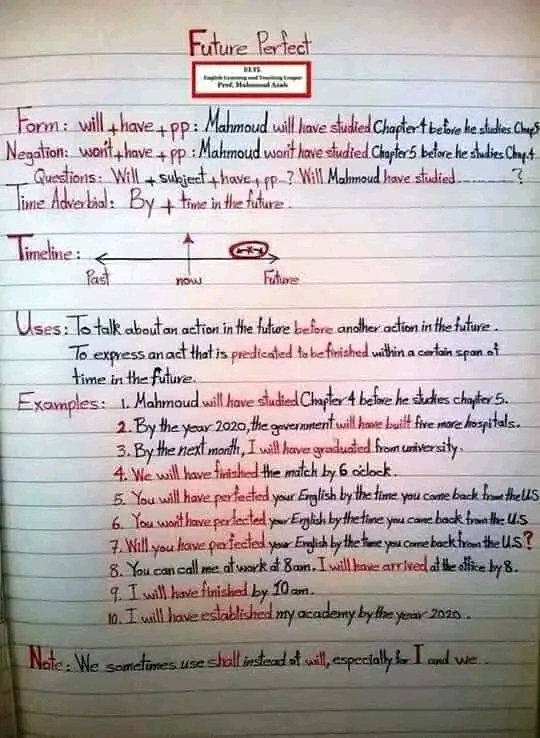 Future Perfect
ELTL
English Learning and Teaching League
Prof. Mahmoud Azab
Form: will + have + pp : Mahmoud will have studied Chapter 4 before he studies Chap5
Negation: won't + have + pp : Mahmoud won't have studied Chapter 5 before he studies Chap.4
Questions: Will + subject + have + pp...? Will Mahmoud have studied..........?
Time Adverbial: By + time in the future.
Timeline:
Past now Future
Uses: To talk about an action in the future before another action in the future.
To express an act that is predicated to be finished within a certain span of
time in the future.
Examples: 1. Mahmoud will have studied Chapter 4 before he studies chapter 5.
2. By the year 2020, the government will have built five more hospitals.
3. By the next month, I will have graduated from university.
4. We will have finished the match by 6 o'clock.
5. You will have perfected your English by the time you come back from the US
6. You won't have perfected your English by the time you come back from the U.S
7. Will you have perfected your English by the time you come back from the U.S?
8. You can call me at work at 8am. I will have arrived at the office by 8.
9. I will have finished by 10am.
10. I will have established my academy by the year 2020.
Note: We sometimes use shall instead of will, especially for I and we.